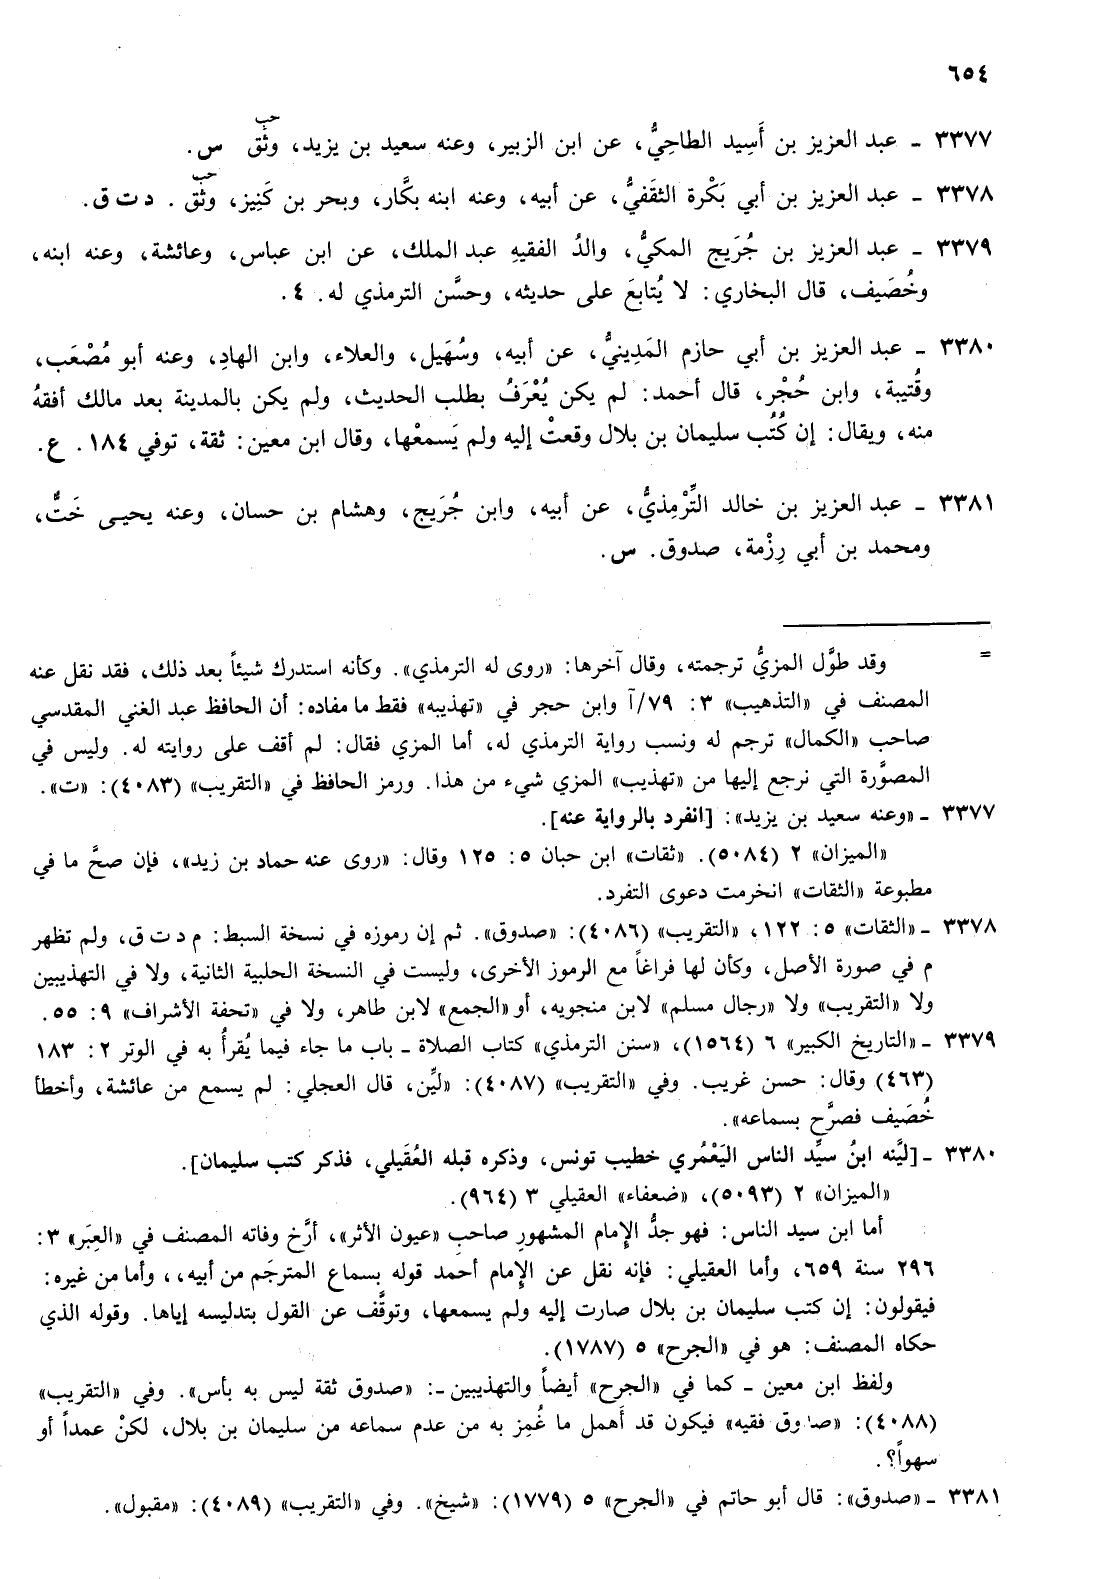 ٦٥٤
٣٣٧٧ ـ عبد العزيز بن أَسِيد الطاحِيُّ، عن ابن الزبير، وعنه سعيد بن يزيد، وثِّق حب س.
٣٣٧٨ ـ عبد العزيز بن أبي بَكْرة الثقَفيُّ، عن أبيه، وعنه ابنه بكَّار، وبحر بن كَنِيز، وثِّق حب . د ت ق.
٣٣٧٩ ـ عبد العزيز بن جُرَيج المكيُّ، والدُ الفقيهِ عبد الملك، عن ابن عباس، وعائشة، وعنه ابنه،
وخُصَيف، قال البخاري: لا يُتابعَ على حديثه، وحسَّن الترمذي له. ٤.
٣٣٨٠ ـ عبد العزيز بن أبي حازم المَدِينيُّ، عن أبيه، وسُهَيل، والعلاء، وابن الهادِ، وعنه أبو مُصْعَب،
وقُتيبة، وابن حُجْر، قال أحمد: لم يكن يُعْرَفُ بطلب الحديث، ولم يكن بالمدينة بعد مالك أفقهُ
منه، ويقال: إن كُتُب سليمان بن بلال وقعتْ إليه ولم يَسمعْها، وقال ابن معين: ثقة، توفي ١٨٤. ع.
٣٣٨١ ـ عبد العزيز بن خالد التِّرْمِذيُّ، عن أبيه، وابن جُرَيج، وهشام بن حسان، وعنه يحيى خَتُّ،
ومحمد بن أبي رِزْمة، صدوق. س.
= وقد طوَّل المزيُّ ترجمته، وقال آخرها: «روى له الترمذي». وكأنه استدرك شيئاً بعد ذلك، فقد نقل عنه
المصنف في «التذهيب» ٣: ٧٩/آ وابن حجر في «تهذيبه» فقط ما مفاده: أن الحافظ عبد الغني المقدسي
صاحب «الكمال» ترجم له ونسب رواية الترمذي له، أما المزي فقال: لم أقف على روايته له. وليس في
المصوَّرة التي نرجع إليها من «تهذيب» المزي شيء من هذا. ورمز الحافظ في «التقريب» (٤٠٨٣): «ت».
٣٣٧٧ ـ «وعنه سعيد بن يزيد»: [انفرد بالرواية عنه].
«الميزان» ٢ (٥٠٨٤). «ثقات» ابن حبان ٥: ١٢٥ وقال: «روى عنه حماد بن زيد»، فإن صحَّ ما في
مطبوعة «الثقات» انخرمت دعوى التفرد.
٣٣٧٨ ـ «الثقات» ٥: ١٢٢، «التقريب» (٤٠٨٦): «صدوق». ثم إن رموزه في نسخة السبط: م د ت ق، ولم تظهر
م في صورة الأصل، وكأن لها فراغاً مع الرموز الأخرى، وليست في النسخة الحلبية الثانية، ولا في التهذيبين
ولا «التقريب» ولا «رجال مسلم» لابن منجويه، أو «الجمع» لابن طاهر، ولا في «تحفة الأشراف» ٩: ٥٥.
٣٣٧٩ ـ «التاريخ الكبير» ٦ (١٥٦٤)، «سنن الترمذي» كتاب الصلاة ـ باب ما جاء فيما يُقرأُ به في الوتر ٢: ١٨٣
(٤٦٣) وقال: حسن غريب. وفي «التقريب» (٤٠٨٧): «ليِّن، قال العجلي: لم يسمع من عائشة، وأخطأ
خُصَيف فصرَّح بسماعه».
٣٣٨٠ ـ [ليَّنه ابنُ سيِّد الناس اليَعْمُري خطيب تونس، وذكره قبله العُقَيلي، فذكر كتب سليمان].
«الميزان» ٢ (٥٠٩٣)، «ضعفاء» العقيلي ٣ (٩٦٤).
أما ابن سيد الناس: فهو جدُّ الإِمام المشهورِ صاحبِ «عيون الأثر»، أرَّخ وفاته المصنف في «العِبَر» ٣:
٢٩٦ سنة ٦٥٩، وأما العقيلي: فإنه نقل عن الإِمام أحمد قوله بسماع المترجَم من أبيه،، وأما من غيره:
فيقولون: إن كتب سليمان بن بلال صارت إليه ولم يسمعها، وتوقَّف عن القول بتدليسه إياها. وقوله الذي
حكاه المصنف: هو في «الجرح» ٥ (١٧٨٧).
ولفظ ابن معين ـ كما في «الجرح» أيضاً والتهذيبين ـ: «صدوق ثقة ليس به بأس». وفي «التقريب»
(٤٠٨٨): «صدوق فقيه» فيكون قد أَهمل ما غُمِز به من عدم سماعه من سليمان بن بلال، لكنْ عمداً أو
سهواً؟.
٣٣٨١ ـ «صدوق»: قال أبو حاتم في «الجرح» ٥ (١٧٧٩): «شيخ». وفي «التقريب» (٤٠٨٩): «مقبول».